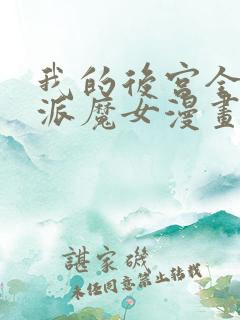 我的後宮全
派魔女漫畫
諶家磯
未經同意禁止轉載